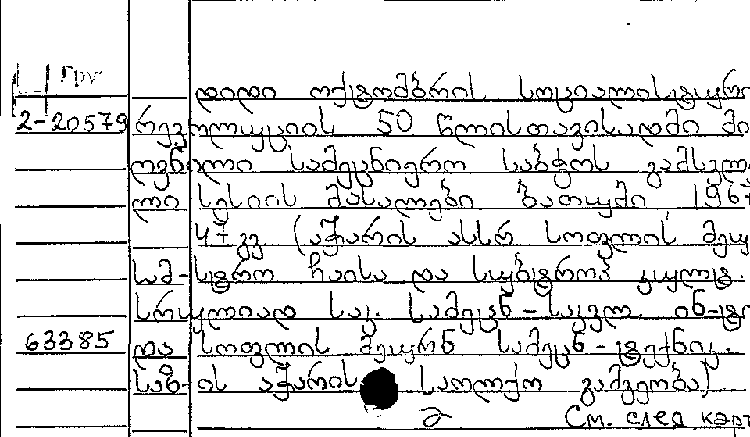 Гру
დიდი ოქტომბრის სოციალისტური
2-20579 რევოლუციის 50 წლისთავისადმი მი
ღვნილი სამეცნიერო საბჭოს გამსვლე
ლი სესიის მასალები ბათუმი 1967
47 გვ. (აჭარის ასსრ სოფლის მეურ
სამ-სტრო ჩაისა და სუბტროპ. კულტ.
სრულიად საკ. სამეცნ-საკვლ. ინ-ტი
63385 და სოფლის მეურნ სამეცნ-ტექნიკ.
საზ-ის აჭარის საოლქო გამგეობა)
2 См. след карт